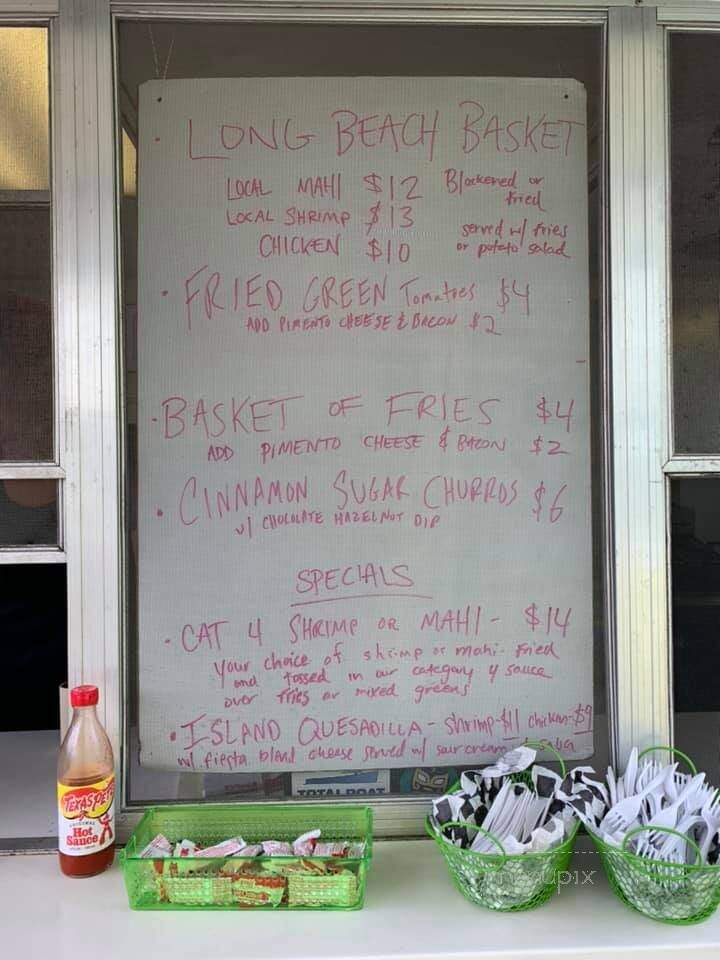 · LONG BEACH BASKET
LOCAL MAHI $12
LOCAL SHRIMP $13
CHICKEN $10
Blackened or
fried
served w/ fries
or potato salad
· FRIED GREEN Tomatoes $4
ADD PIMENTO CHEESE & BACON $2
· BASKET OF FRIES $4
ADD PIMENTO CHEESE & BACON $2
· CINNAMON SUGAR CHURROS $6
w/ CHOCOLATE HAZELNUT DIP
SPECIALS
· CAT 4 SHRIMP OR MAHI - $14
Your choice of shrimp or mahi - fried
and tossed in our category 4 sauce
over fries or mixed greens
· ISLAND QUESADILLA - shrimp-$11 chicken-$9
w/ fiesta blend cheese served w/ sour cream
TOTALBOAT
TEXAS PETE
ORIGINAL
Hot
Sauce